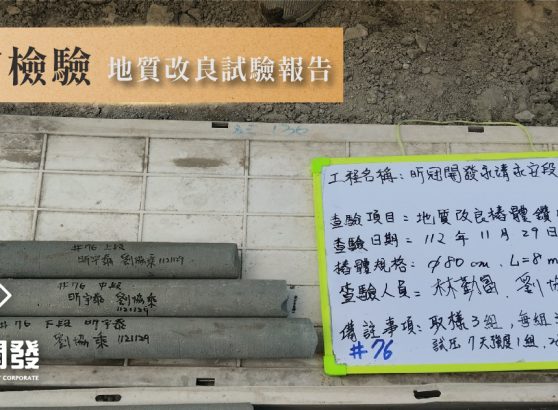 檢驗 地質改良試驗報告
工程名稱：昕冠開發永靖永安段
查驗項目＝地質改良樁體鑽
查驗日期＝112年11月29日
樁體規格：φ80cm, L=8m
查驗人員＝林勤富、劉協
備註事項：取樣3組，每組
試压7天強度1組,
#76
#76 上段
劉協乘 1121129
#76 中段
劉協乘
1121129
#76 下段
劉協乘 1121129
開發
CORPORATE